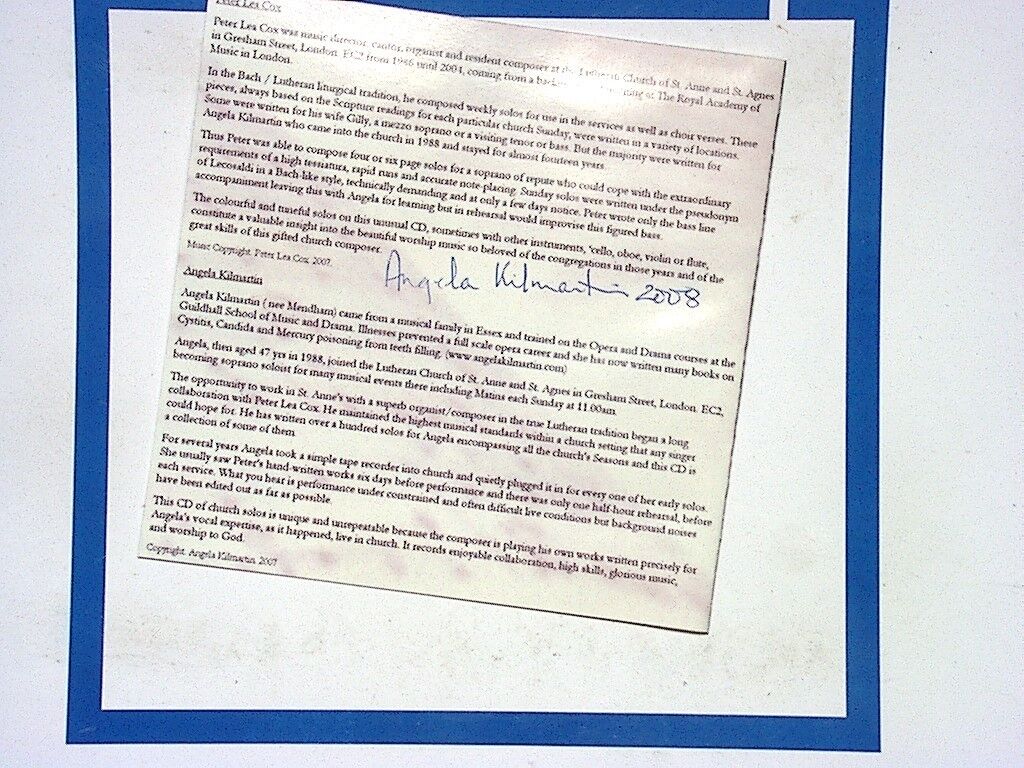 Peter Lea Cox
Peter Lea Cox was music director, cantor, organist and resident composer at the Lutheran Church of St. Anne and St. Agnes
in Gresham Street, London. EC2 from 1986 until 2004, coming from a at The Royal Academy of
Music in London.
In the Bach / Lutheran liturgical tradition, he composed weekly solos for use in the services as well as choir verses. These
pieces, always based on the Scripture readings for each particular church Sunday, were written in a variety of locations.
Some were written for his wife Gilly, a mezzo soprano or a visiting tenor or bass. But the majority were written for
Angela Kilmartin who came into the church in 1988 and stayed for almost fourteen years.
Thus Peter was able to compose four or six page solos for a soprano of repute who could cope with the extraordinary
requirements of a high tessitura, rapid runs and accurate note placing. Sunday solos were written under the pseudonym
of Lecosaldi in a Bach-like style, technically demanding and at only a few days notice. Peter wrote only the bass line
accompaniment leaving this with Angela for learning but in rehearsal would improvise this figured bass.
The colourful and tuneful solos on this unusual CD, sometimes with other instruments, 'cello, oboe, violin or flute,
constitute a valuable insight into the beautiful worship music so beloved of the congregations in those years and of the
great skills of this gifted church composer.
Music Copyright. Peter Lea Cox. 2007.
Angela Kilmartin 2008
Angela Kilmartin
Angela Kilmartin ( nee Mendham) came from a musical family in Essex and trained on the Opera and Drama courses at the
Guildhall School of Music and Drama. Illnesses prevented a full scale opera career and she has now written many books on
Cystitis, Candida and Mercury poisoning from teeth filling. (www.angelakilmartin.com)
Angela, then aged 47 yrs in 1988, joined the Lutheran Church of St. Anne and St. Agnes in Gresham Street, London. EC2,
becoming soprano soloist for many musical events there including Matins each Sunday at 11.00am.
The opportunity to work in St. Anne's with a superb organist/composer in the true Lutheran tradition began a long
collaboration with Peter Lea Cox. He maintained the highest musical standards within a church setting that any singer
could hope for. He has written over a hundred solos for Angela encompassing all the church's Seasons and this CD is
a collection of some of them.
For several years Angela took a simple tape recorder into church and quietly plugged it in for every one of her early solos.
She usually saw Peter's hand-written works six days before performance and there was only one half-hour rehearsal, before
each service. What you hear is performance under constrained and often difficult live conditions but background noises
have been edited out as far as possible.
This CD of church solos is unique and unrepeatable because the composer is playing his own works written precisely for
Angela's vocal expertise, as it happened, live in church. It records enjoyable collaboration, high skills, glorious music,
and worship to God.
Copyright. Angela Kilmartin. 2007